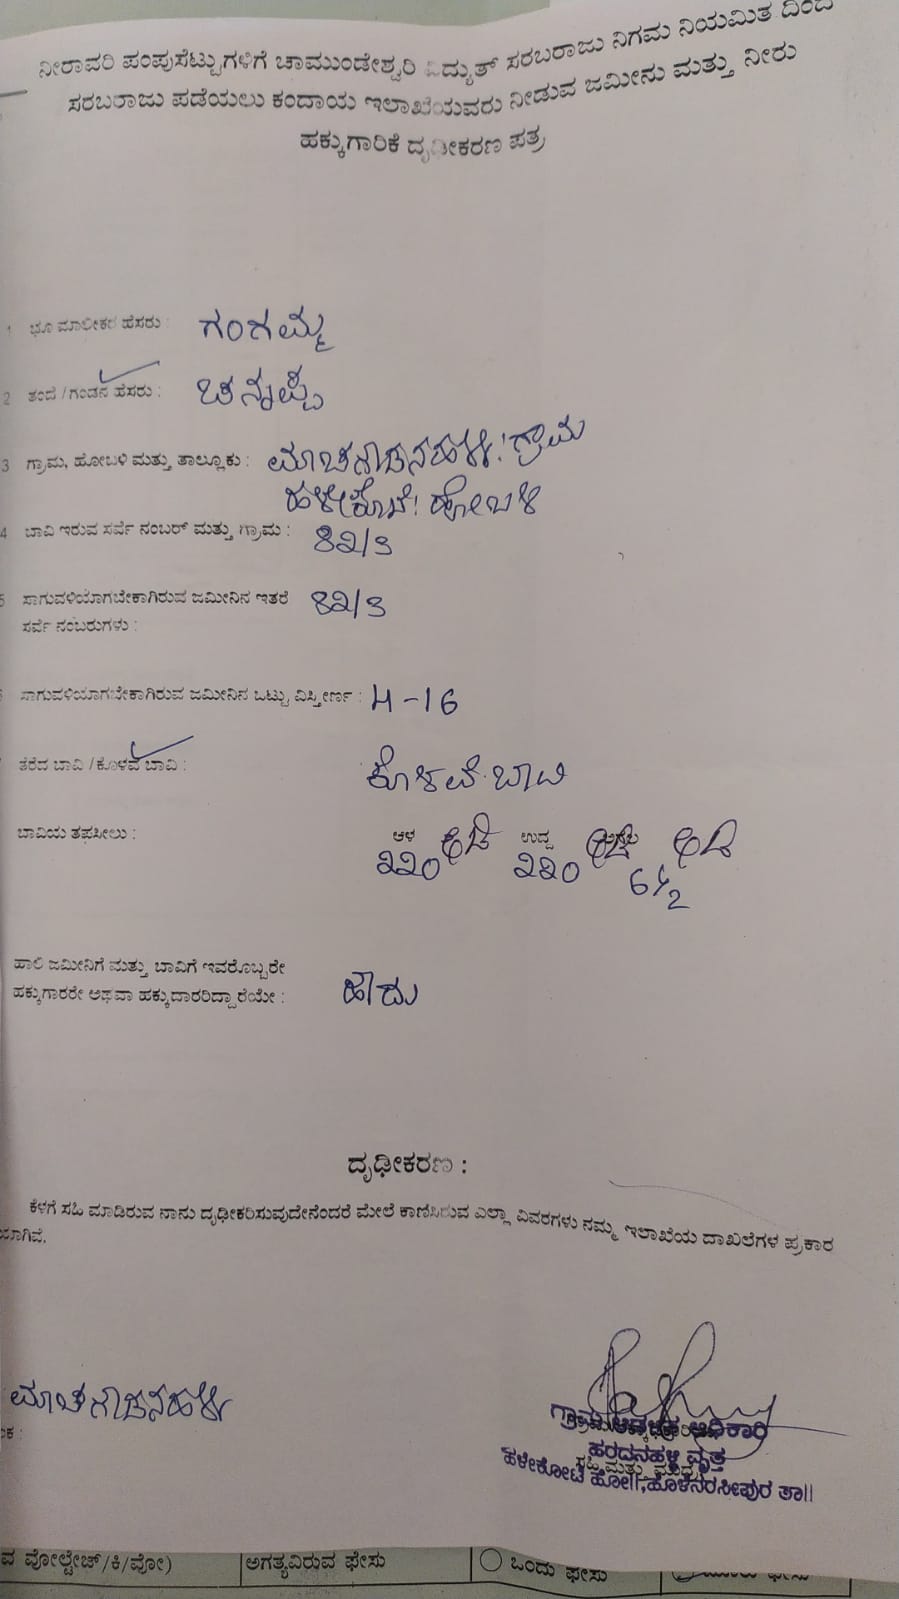 ನೀರಾವರಿ ಪಂಪುಸೆಟ್ಟುಗಳಿಗೆ ಚಾಮುಂಡೇಶ್ವರಿ ವಿದ್ಯುತ್ ಸರಬರಾಜು ನಿಗಮ ನಿಯಮಿತ ದಿಂದ
ಸರಬರಾಜು ಪಡೆಯಲು ಕಂದಾಯ ಇಲಾಖೆಯವರು ನೀಡುವ ಜಮೀನು ಮತ್ತು ನೀರು
ಹಕ್ಕುಗಾರಿಕೆ ದೃಢೀಕರಣ ಪತ್ರ
1 ಭೂ ಮಾಲೀಕರ ಹೆಸರು : ಗಂಗಮ್ಮ
2 ತಂದೆ / ಗಂಡನ ಹೆಸರು : ಚನ್ನಪ್ಪ
3 ಗ್ರಾಮ, ಹೋಬಳಿ ಮತ್ತು ತಾಲ್ಲೂಕು : ಮಾಚಗೌಡನಹಳ್ಳಿ ಗ್ರಾಮ
ಹಳೇಕೋಟೆ ಹೋಬಳಿ
4 ಬಾವಿ ಇರುವ ಸರ್ವೆ ನಂಬರ್ ಮತ್ತು ಗ್ರಾಮ : 82/3
5 ಸಾಗುವಳಿಯಾಗಬೇಕಾಗಿರುವ ಜಮೀನಿನ ಇತರೆ 82/3
ಸರ್ವೆ ನಂಬರುಗಳು :
ಸಾಗುವಳಿಯಾಗಬೇಕಾಗಿರುವ ಜಮೀನಿನ ಒಟ್ಟು ವಿಸ್ತೀರ್ಣ : 4-16
ತೆರೆದ ಬಾವಿ / ಕೊಳವೆ ಬಾವಿ : ಕೊಳವೆ ಬಾವಿ
ಬಾವಿಯ ತಪಸೀಲು : ಆಳ ಅಡಿ ಉದ್ದ ಅಡಿ ಅಗಲ ಅಡಿ
220 220 6½
ಹಾಲಿ ಜಮೀನಿಗೆ ಮತ್ತು ಬಾವಿಗೆ ಇವರೊಬ್ಬರೇ
ಹಕ್ಕುಗಾರರೇ ಅಥವಾ ಹಕ್ಕುದಾರರಿದ್ದಾರೆಯೇ : ಹೌದು
ದೃಢೀಕರಣ :
ಕೆಳಗೆ ಸಹಿ ಮಾಡಿರುವ ನಾನು ದೃಢೀಕರಿಸುವುದೇನೆಂದರೆ ಮೇಲೆ ಕಾಣಿಸಿರುವ ಎಲ್ಲಾ ವಿವರಗಳು ನಮ್ಮ ಇಲಾಖೆಯ ದಾಖಲೆಗಳ ಪ್ರಕಾರ
ಯಾಗಿವೆ.
ಮಾಚಗೌಡನಹಳ್ಳಿ
ಗ್ರಾಮ ಆಡಳಿತ ಅಧಿಕಾರಿ
ಹರದನಹಳ್ಳಿ ವೃತ್ತ
ಸಹಿ ಮತ್ತು ಮುದ್ರೆ
ಹಳೇಕೋಟೆ ಹೋ||, ಹೊಳೆನರಸೀಪುರ ತಾ||
ವ ವೋಲ್ಟೇಜ್/ಕಿ/ವೋ) ಅಗತ್ಯವಿರುವ ಫೇಸು ಒಂದು ಫೇಸು ಮೂರು ಫೇಸು